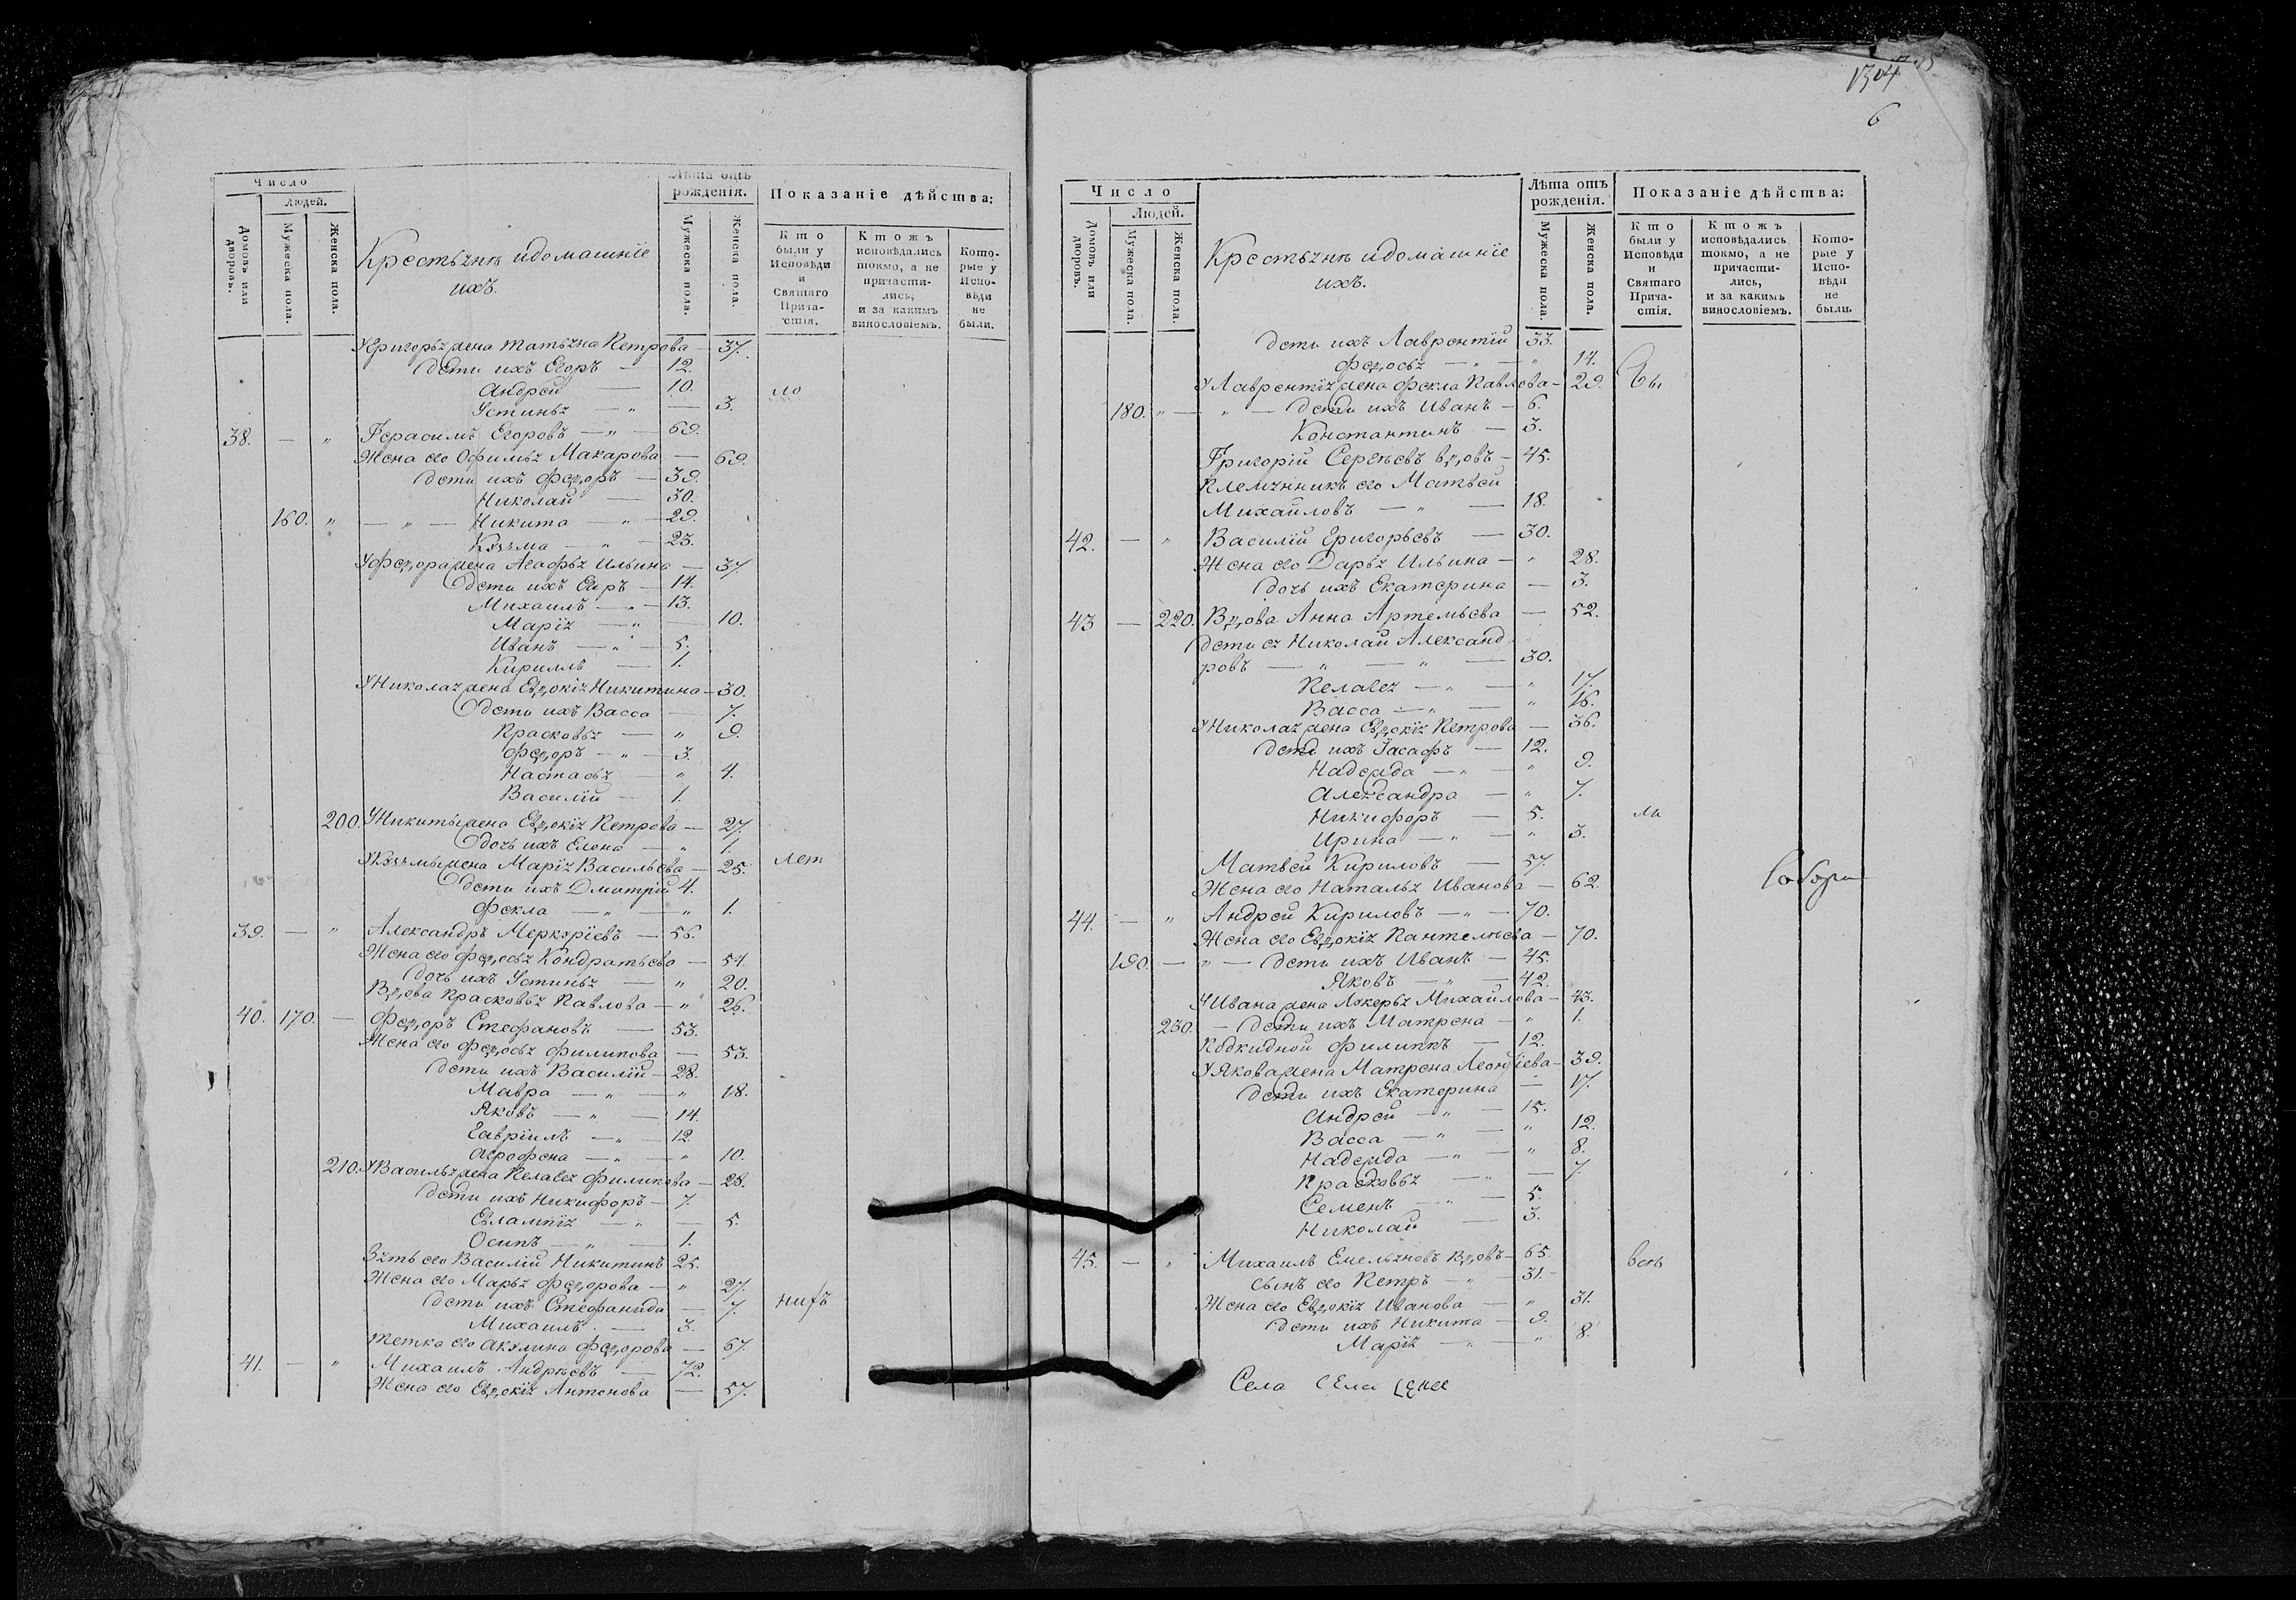 Число
Людей.
Домовъ или дворовъ.
Мужеска пола.
Женска пола.
Крестьянѣ и домашніе
ихъ.
Лѣта отъ
рожденія.
Мужеска пола.
Женска пола.
Показаніе дѣйства:
Кто
были у
Исповѣди
и
Святаго
Прича-
стія.
Ктожъ
исповѣдались
токмо, а не
причасти-
лись,
и за какимъ
винословіемъ.
Кото-
рые у
Испо-
вѣди
не
были.
У Григорья жена Татьяна Петрова — 37.
Дети ихъ Егоръ — 12.
Андрей — 10. ло
Устинья — „ — 3.
38. — „ Герасимъ Егоровъ — „ — 69.
Жена его Офимья Макарова — 69.
Дети ихъ Федоръ — 39.
Николай — 30.
160. „ — „ — Никита — „ — 29.
Кузьма — „ — 23.
У Федора жена Агафья Ильина — 37.
Дети ихъ Егоръ — 14.
Михаилъ — „ — 13.
Марія — „ — 10.
Иванъ — „ — 5.
Кириллъ — 1.
У Николая жена Евдокія Никитина — 30.
Дети ихъ Васса — 7.
Прасковья — „ 9.
Федоръ — „ — 3.
Настасья — „ 4.
Василій — 1.
200. У Никиты жена Евдокія Петрова — 27.
Дочь ихъ Елена — „ 1.
У Кузьмы жена Марія Васильева — 25. лет
Дети ихъ Дмитрій 4.
Фекла — „ — „ 1.
39. — „ Александръ Меркуріевъ — 56.
Жена его Федосья Кондратьева — 54.
Дочь ихъ Устинья — „ 20.
Вдова Прасковья Павлова — „ 26.
40. 170. — Федоръ Стефановъ — 53.
Жена его Федосья Филипова — 53.
Дети ихъ Василій — 28.
Мавра — „ — „ 18.
Яковъ — „ — 14.
Гавріилъ — „ — 12.
Агрофена — „ — „ 10.
210. У Василья жена Пелагея Филипова — 28.
Дети ихъ Никифоръ — 7.
Евлампія — „ — 5.
Осипъ — „ — 1.
Зять его Василій Никитинъ 25.
Жена его Марья Федорова — „ 27.
Дети ихъ Стефанида — 7.
Михаилъ — 3.
Тетка его Акулина Федорова — 67.
41. — „ Михаилъ Андреевъ — 72.
Жена его Евдокія Антонова — 57.
1304
6
Число
Людей.
Домовъ или дворовъ.
Мужеска пола.
Женска пола.
Крестьянѣ и домашніе
ихъ.
Лѣта отъ
рожденія.
Мужеска пола.
Женска пола.
Показаніе дѣйства:
Кто
были у
Исповѣди
и
Святаго
Прича-
стія.
Ктожъ
исповѣдались
токмо, а не
причасти-
лись,
и за какимъ
винословіемъ.
Кото-
рые у
Испо-
вѣди
не
были.
Дети ихъ Лаврентій 33.
Федосья — „ — „ 14.
У Лаврентія жена Фекла Павлова — 29.
180. „ — „ — Дети ихъ Иванъ — 6.
Константинъ — 3.
Григорій Сергѣевъ вдовъ — 45.
Племянникъ его Матвей
Михайловъ — „ — 18.
42. — „ Василій Григорьевъ — 30.
Жена его Дарья Ильина — „ 28.
Дочь ихъ Екатерина — 3.
43 — 220. Вдова Анна Артемьева — 52.
Дети ея Николай Александ
ровъ — „ — „ — 30.
Пелагея — „ — „ 17.
Васса — „ — „ 16.
У Николая жена Евдокія Петрова — 36.
Дети ихъ Іасафъ — 12.
Надежда — „ — „ 9.
Александра — „ 7.
Никифоръ — 5. ли
Ирина — „ — „ 3.
Матвей Кириловъ — 57.
Жена его Наталья Иванова — 62.
44. — „ Андрей Кириловъ — „ — 70.
Жена его Евдокія Пантелѣева — 70.
190. — „ — Дети ихъ Иванъ — 45.
Яковъ — „ — 42.
У Ивана жена Лукерья Михайлова — 43.
230. — Дети ихъ Матрена — „ 1.
Подкидной Филиппъ — 12.
У Якова жена Матрена Леонтіева — 39.
Дети ихъ Екатерина — 17.
Андрей — „ — 15.
Васса — „ — „ 12.
Надежда — „ — „ 8.
Прасковья — „ — 7.
Семенъ — „ — 5.
Николай — 3.
45. — „ Михаилъ Емельяновъ вдовъ — 65.
Сынъ его Петръ — „ — 31.
Жена его Евдокія Иванова — „ 31.
Дети ихъ Никита — 9.
Марія — „ — „ 8.
Села